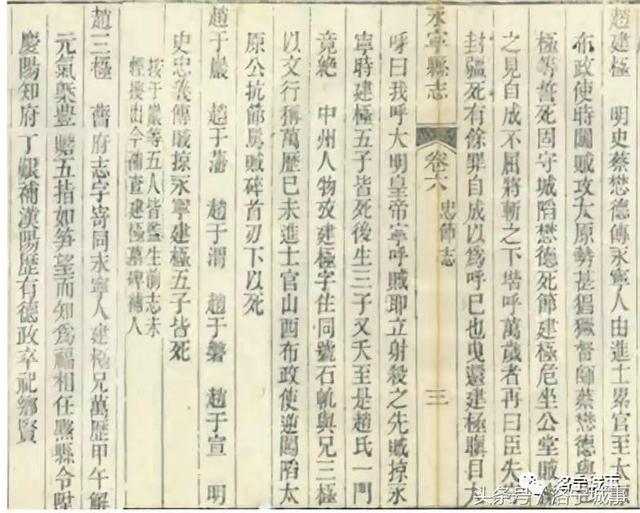 趙建極 明史蔡懋德傳永寧人由進士累官至太原
布政使時闖賊攻太原勢甚猖獗督師蔡懋德與建
極等誓死固守城陷懋德死節建極危坐公堂賊
之見自成不屈將斬之下堦呼萬歲者再曰臣失守
封疆死有餘罪自成以為呼已也曳還建極瞋目大
呼曰我呼大明皇帝寧呼賊耶立射殺之先賊掠永
永寧縣志 卷六 忠節志 三
寧時建極五子皆死後生三子又夭至是趙氏一門
竟絶 中州人物攷建極字住同號石軌與兄三極
以文行稱萬歷己未進士官山西布政使逆闖陷太
原公抗節罵賊碎首刃下以死
趙于巖 趙于藩 趙于渭 趙于磐 趙于宣 明
史忠義傳賊掠永寧建極五子皆死
按于巖等五人皆監生前志未
經接出今補查建極墓碑補入
趙三極 舊府志字寄同永寧人建極兄萬歷甲午解
元氣槩豐 五指如笋望而知為福相任黟縣令陞
慶陽知府丁艱補漢陽歷有德政卒祀鄉賢
洛宁城事
头条号/洛宁城事